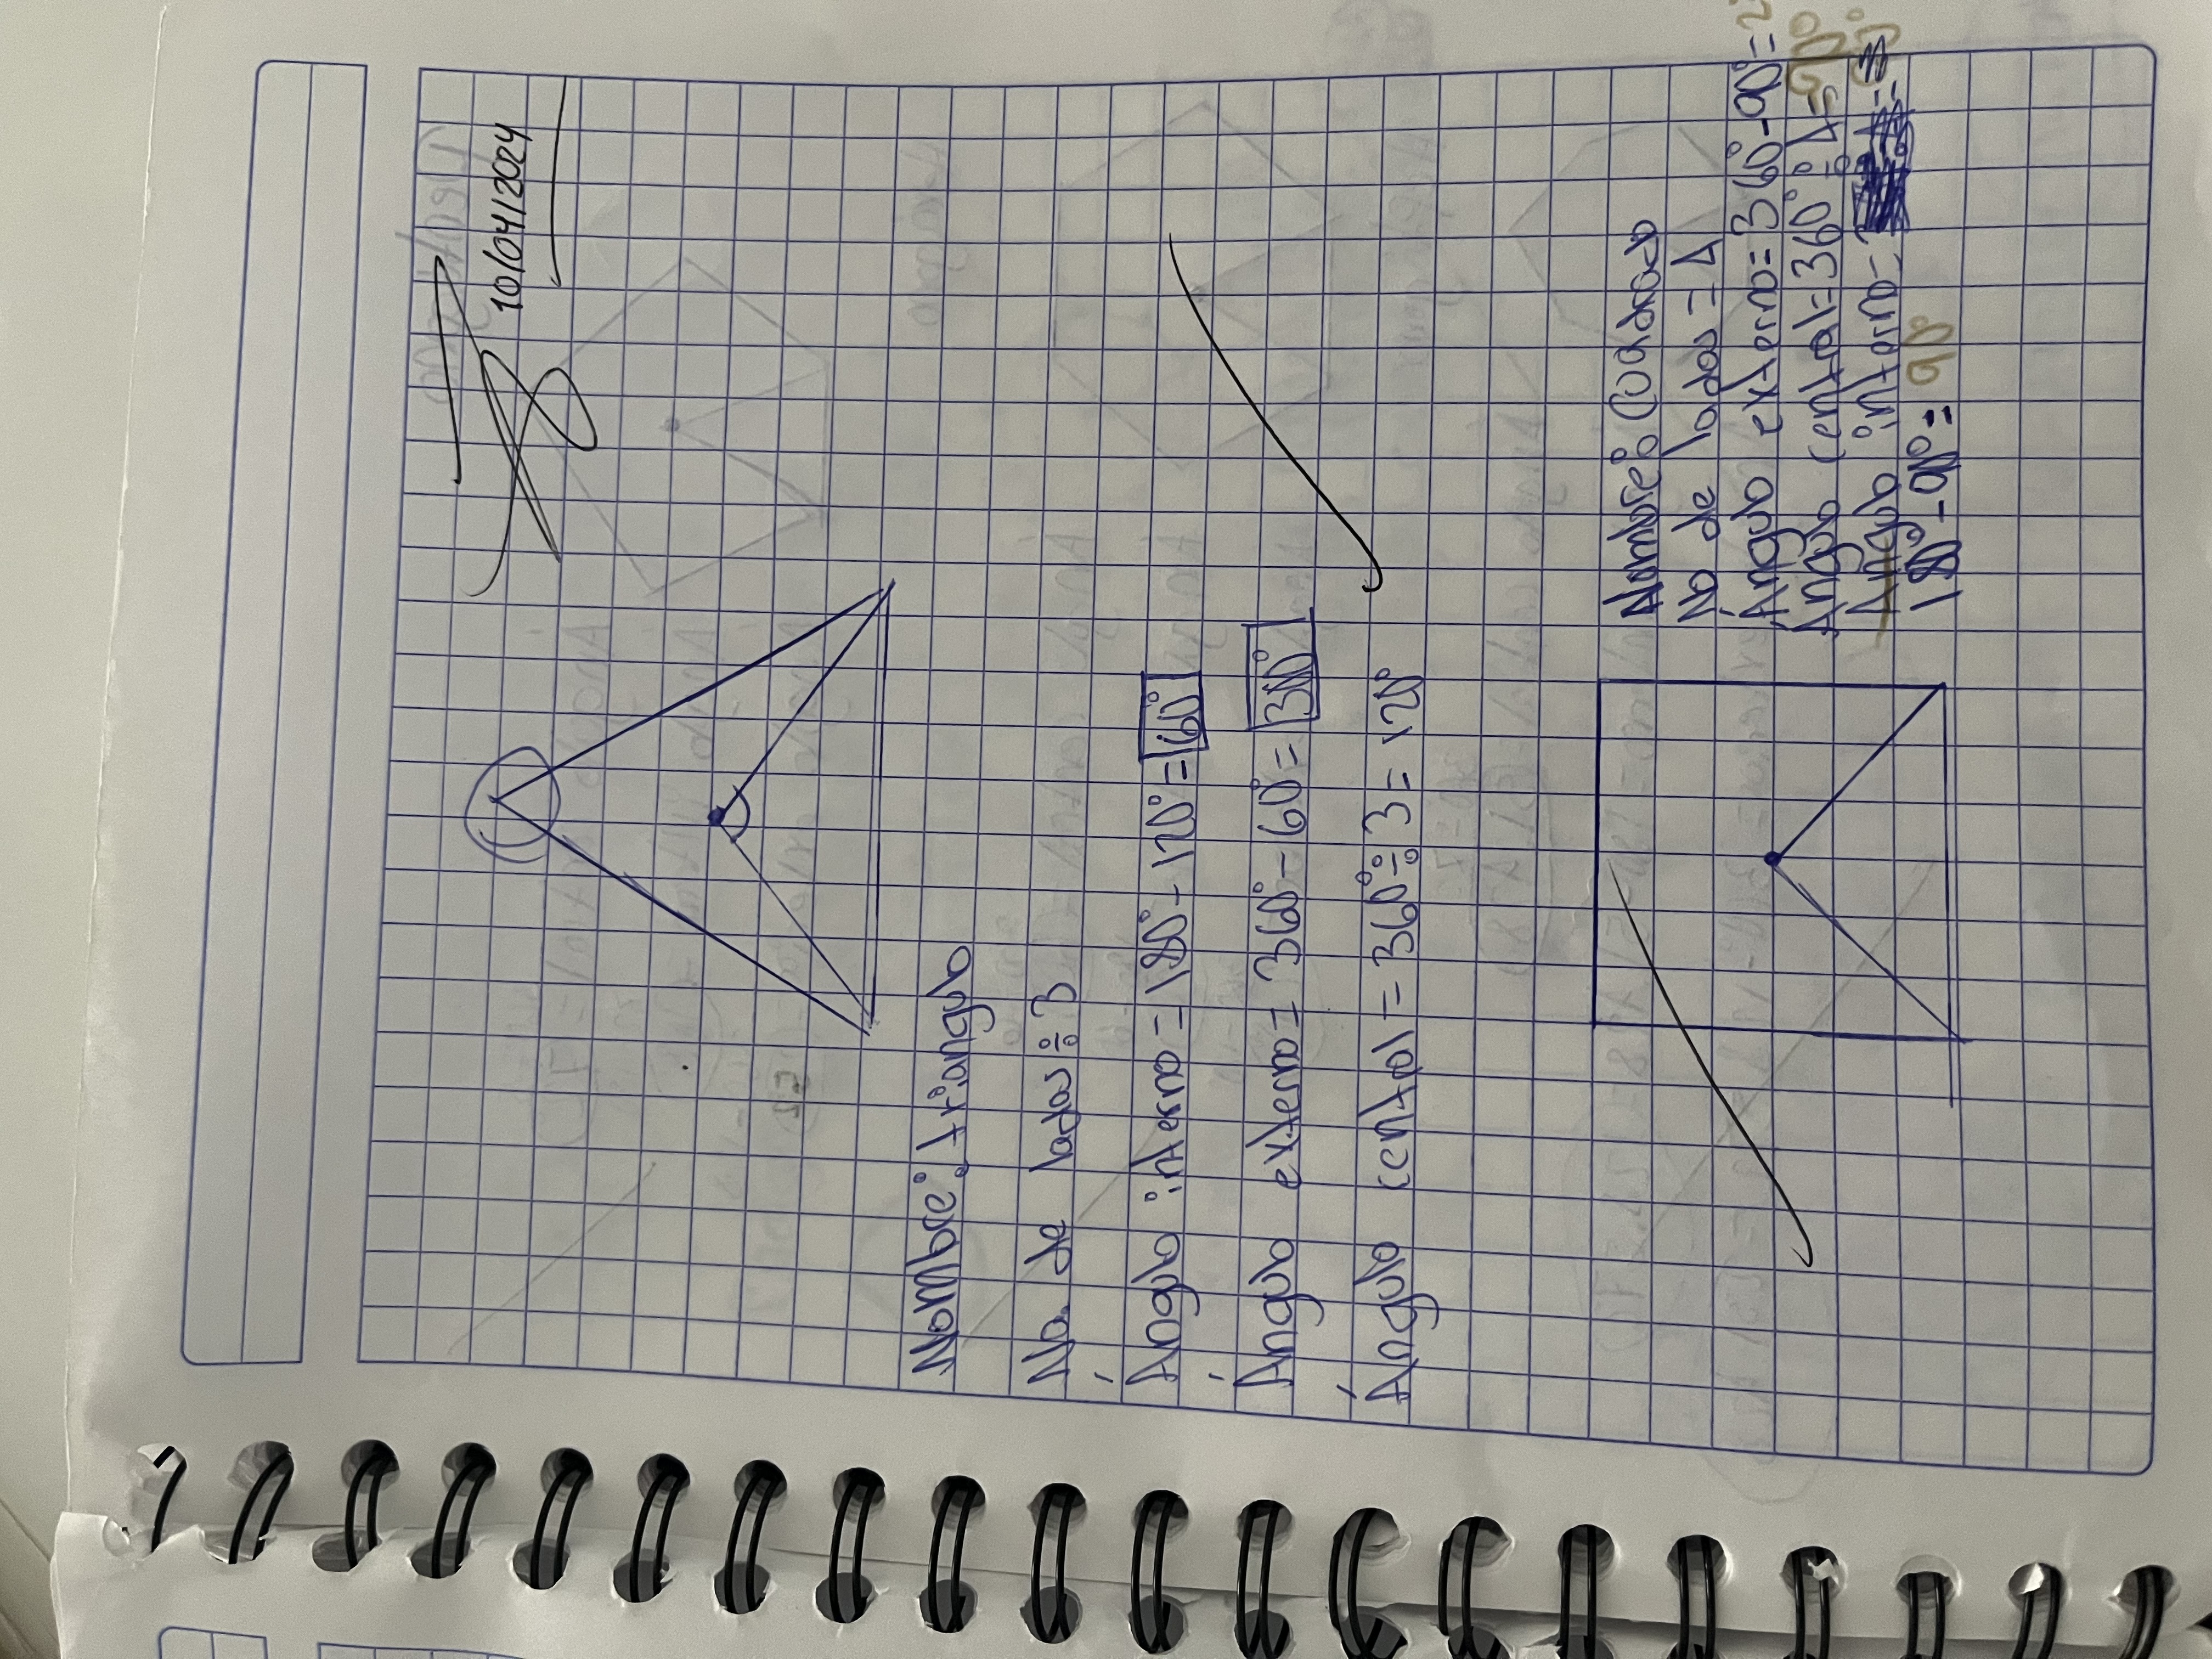 10/04/2024
Nombre: triangulo
No. de lados: 3
Ángulo interno = 180° - 120° = 60°
Ángulo externo = 360° - 60° = 300°
Ángulo central = 360° ÷ 3 = 120°
Nombre: Cuadrado
No de lados = 4
Ángulo externo = 360° - 90° = 2
Ángulo central = 360° ÷ 4 = 90°
Ángulo interno =
180° - 90° = 90°